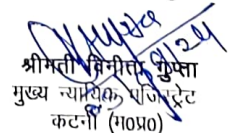 श्रीमती विनीता गुप्ता
मुख्य न्यायिक मजिस्ट्रेट
कटनी (म०प्र०)